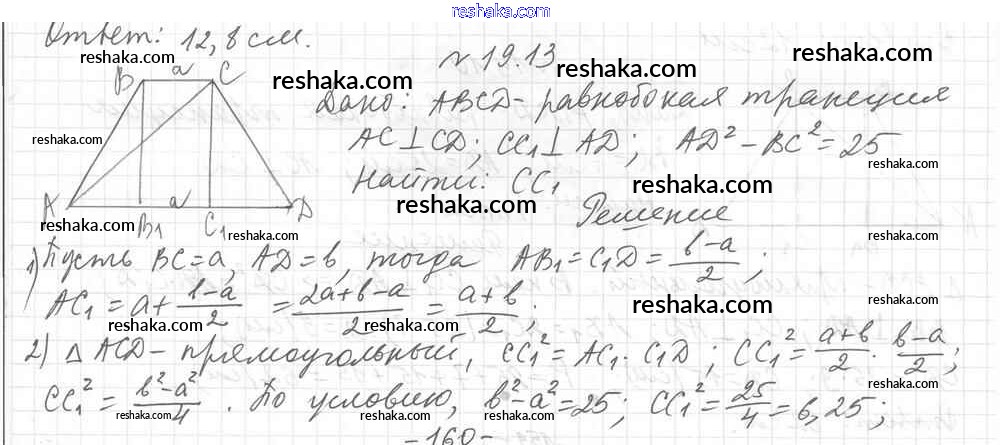 reshaka.com
Ответ: 12,8 см.
reshaka.com
N 19.13
reshaka.com
reshaka.com
B a C
reshaka.com
Дано: ABCD - равнобокая трапеция
reshaka.com
AC ⊥ CD; CC₁ ⊥ AD; AD² - BC² = 25
reshaka.com
Найти: CC₁
reshaka.com
reshaka.com
A B₁ a C₁ D
reshaka.com
reshaka.com
reshaka.com
Решение
1) Пусть BC = a, AD = b, тогда AB₁ = C₁D = (b-a)/2;
reshaka.com
AC₁ = a + (b-a)/2 = (2a+b-a)/2 = (a+b)/2;
reshaka.com
reshaka.com
reshaka.com
2) △ ACD - прямоугольный, CC₁² = AC₁ · C₁D; CC₁² = (a+b)/2 · (b-a)/2;
reshaka.com
CC₁² = (b²-a²)/4. По условию, b²-a² = 25; CC₁² = 25/4 = 6,25;
reshaka.com
reshaka.com
reshaka.com
-160-